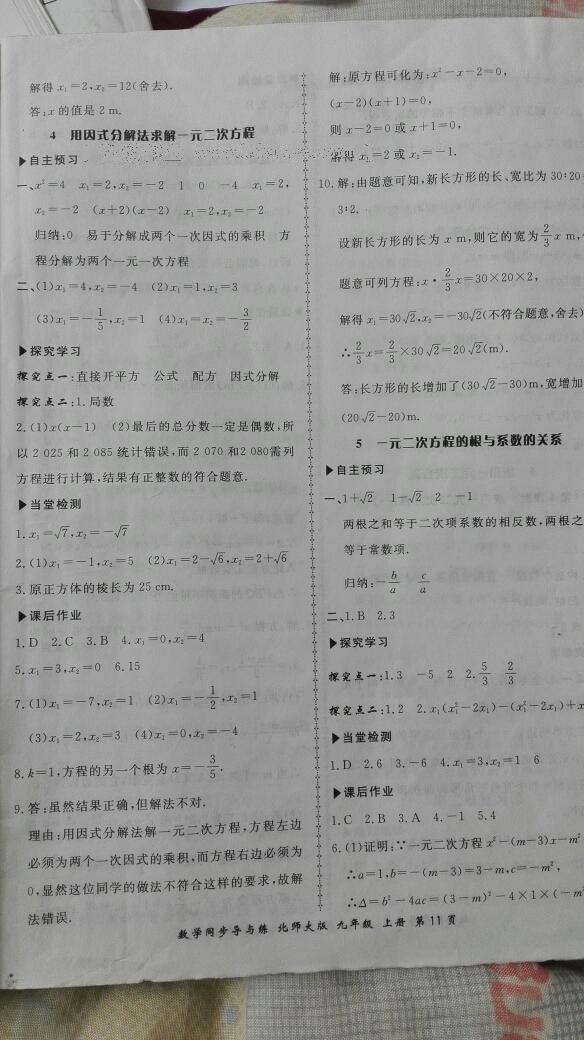 解得 x₁=2,x₂=12(舍去).
答:x 的值是 2 m.
4 用因式分解法求解一元二次方程
▶自主预习
一、x²=4 x₁=2,x₂=-2 1 0 -4 x₁=2,
x₂=-2 (x+2)(x-2) x₁=2,x₂=-2
归纳:0 易于分解成两个一次因式的乘积 方
程分解为两个一元一次方程
二、(1)x₁=4,x₂=-4 (2)x₁=1,x₂=3
(3)x₁=-1/5,x₂=1 (4)x₁=x₂=-3/2
▶探究学习
探究点一:直接开平方 公式 配方 因式分解
探究点二:1.局数
2.(1)x(x-1) (2)最后的总分数一定是偶数,所
以 2 025 和 2 085 统计错误,而 2 070 和2 080需列
方程进行计算,结果有正整数的符合题意.
▶当堂检测
1.x₁=√7,x₂=-√7
2.(1)x₁=-1,x₂=5 (2)x₁=2-√6,x₂=2+√6
3.原正方体的棱长为 25 cm.
▶课后作业
1.D 2.C 3.B 4.x₁=0,x₂=4
5.x₁=3,x₂=0 6.15
7.(1)x₁=-7,x₂=1 (2)x₁=-1/2,x₂=1
(3)x₁=2,x₂=3 (4)x₁=0,x₂=-4
8.k=1,方程的另一个根为 x=-3/5.
9.答:虽然结果正确,但解法不对.
理由:用因式分解法解一元二次方程,方程左边
必须为两个一次因式的乘积,而方程右边必须为
0,显然这位同学的做法不符合这样的要求,故解
法错误.
解:原方程可化为:x²-x-2=0,
(x-2)(x+1)=0,
则 x-2=0 或 x+1=0,
解得 x₁=2 或 x₂=-1.
10.解:由题意可知,新长方形的长、宽比为 30∶20=
3∶2.
设新长方形的长为 x m,则它的宽为 2/3 x m,
题意可列方程:x·2/3 x=30×20×2,
解得 x₁=30√2,x₂=-30√2(不符合题意,舍去)
∴2/3 x=2/3×30√2=20√2(m).
答:长方形的长增加了(30√2-30)m,宽增加
(20√2-20)m.
5 一元二次方程的根与系数的关系
▶自主预习
一、1+√2 1-√2 2 -1
两根之和等于二次项系数的相反数,两根之
等于常数项.
归纳:-b/a c/a
二、1.B 2.3
▶探究学习
探究点一:1.3 -5 2 2.5/3 2/3
探究点二:1.2 2.x₁(x₁²-2x₁)-(x₁²-2x₁)+x
▶当堂检测
1.D 2.6 3.-6 4.x₁=3,x₂=1 6
▶课后作业
1.C 2.B 3.A 4.-1 5.4
6.(1)证明:∵一元二次方程 x²-(m-3)x-m²
∴a=1,b=-(m-3)=3-m,c=-m²,
∴Δ=b²-4ac=(3-m)²-4×1×(-m²
数学同步导与练 北师大版 九年级 上册 第11页